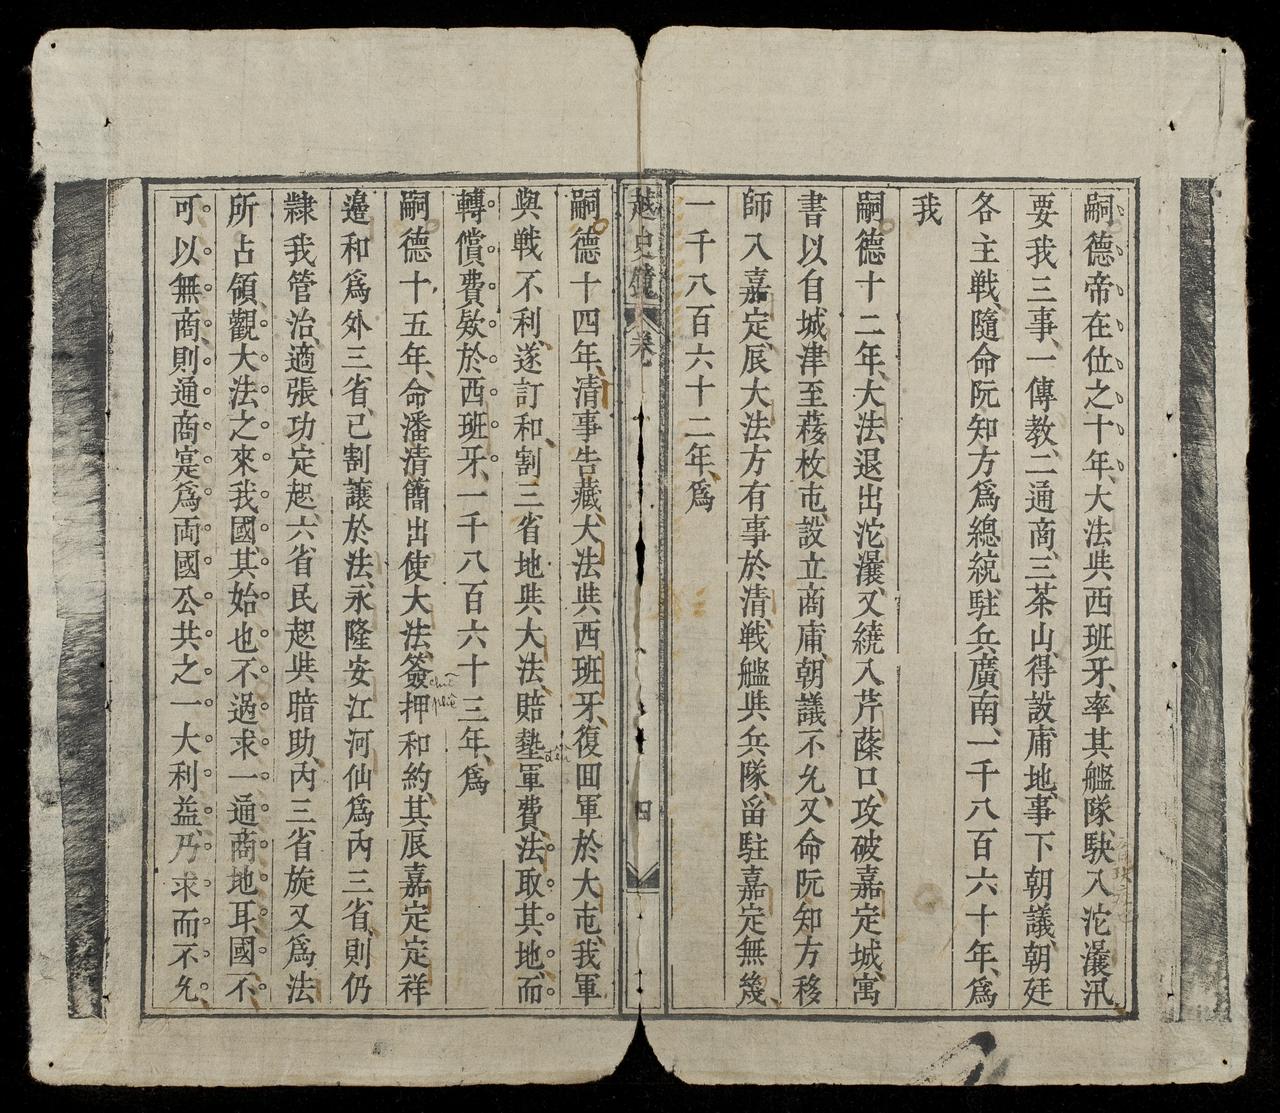 嗣德帝在位之十年、大法與西班牙、率其艦隊、駛入沱㶞汛
要我三事、一傳教、二通商、三茶山、得設庯地、事下朝議、朝廷
各主戰、隨命阮知方爲總統、駐兵廣南、一千八百六十年、爲
我
嗣德十二年、大法退出沱㶞、又繞入芹蒢口、攻破嘉定城、寓
書以自城津至𦲵枚屯、設立商庯、朝議不允、又命阮知方移
師入嘉定、辰大法方有事於清、戰艦與兵隊、留駐嘉定無幾、
一千八百六十二年、爲
越史鏡 卷 四
嗣德十四年、清事告蕆、大法與西班牙、復回軍於大屯、我軍
與戰不利、遂訂和、割三省地與大法、賠墊軍費、法取其地、而
轉償費欵於西班牙、一千八百六十三年、爲
嗣德十五年、命潘清簡出使大法、簽押和約、其辰嘉定定祥
邊和爲外三省、已割讓於法、永隆安江河仙爲內三省、則仍
隸我管治、適張功定起、六省民起與暗助、內三省旋又爲法
所占領、觀大法之來我國、其始也、不過求一通商地耳、國不
可以無商、則通商寔爲両國公共之一大利益、乃求而不允、